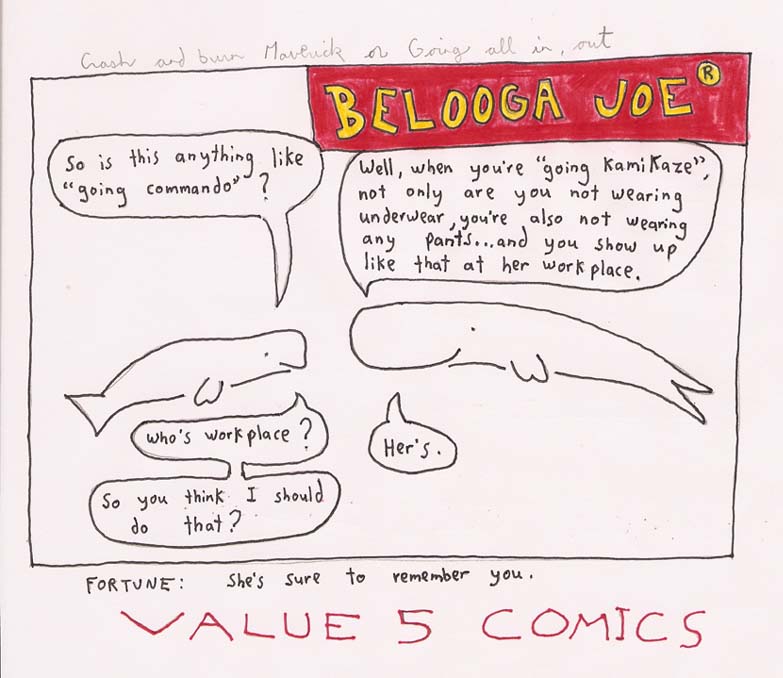 Crash and burn Maverick or Going all in, out
BELOOGA JOE®
So is this anything like
"going commando"?
Well, when you're "going KamiKaze",
not only are you not wearing
underwear, you're also not wearing
any pants...and you show up
like that at her workplace.
who's workplace?
Her's.
So you think I should
do that?
FORTUNE: She's sure to remember you.
VALUE 5 COMICS